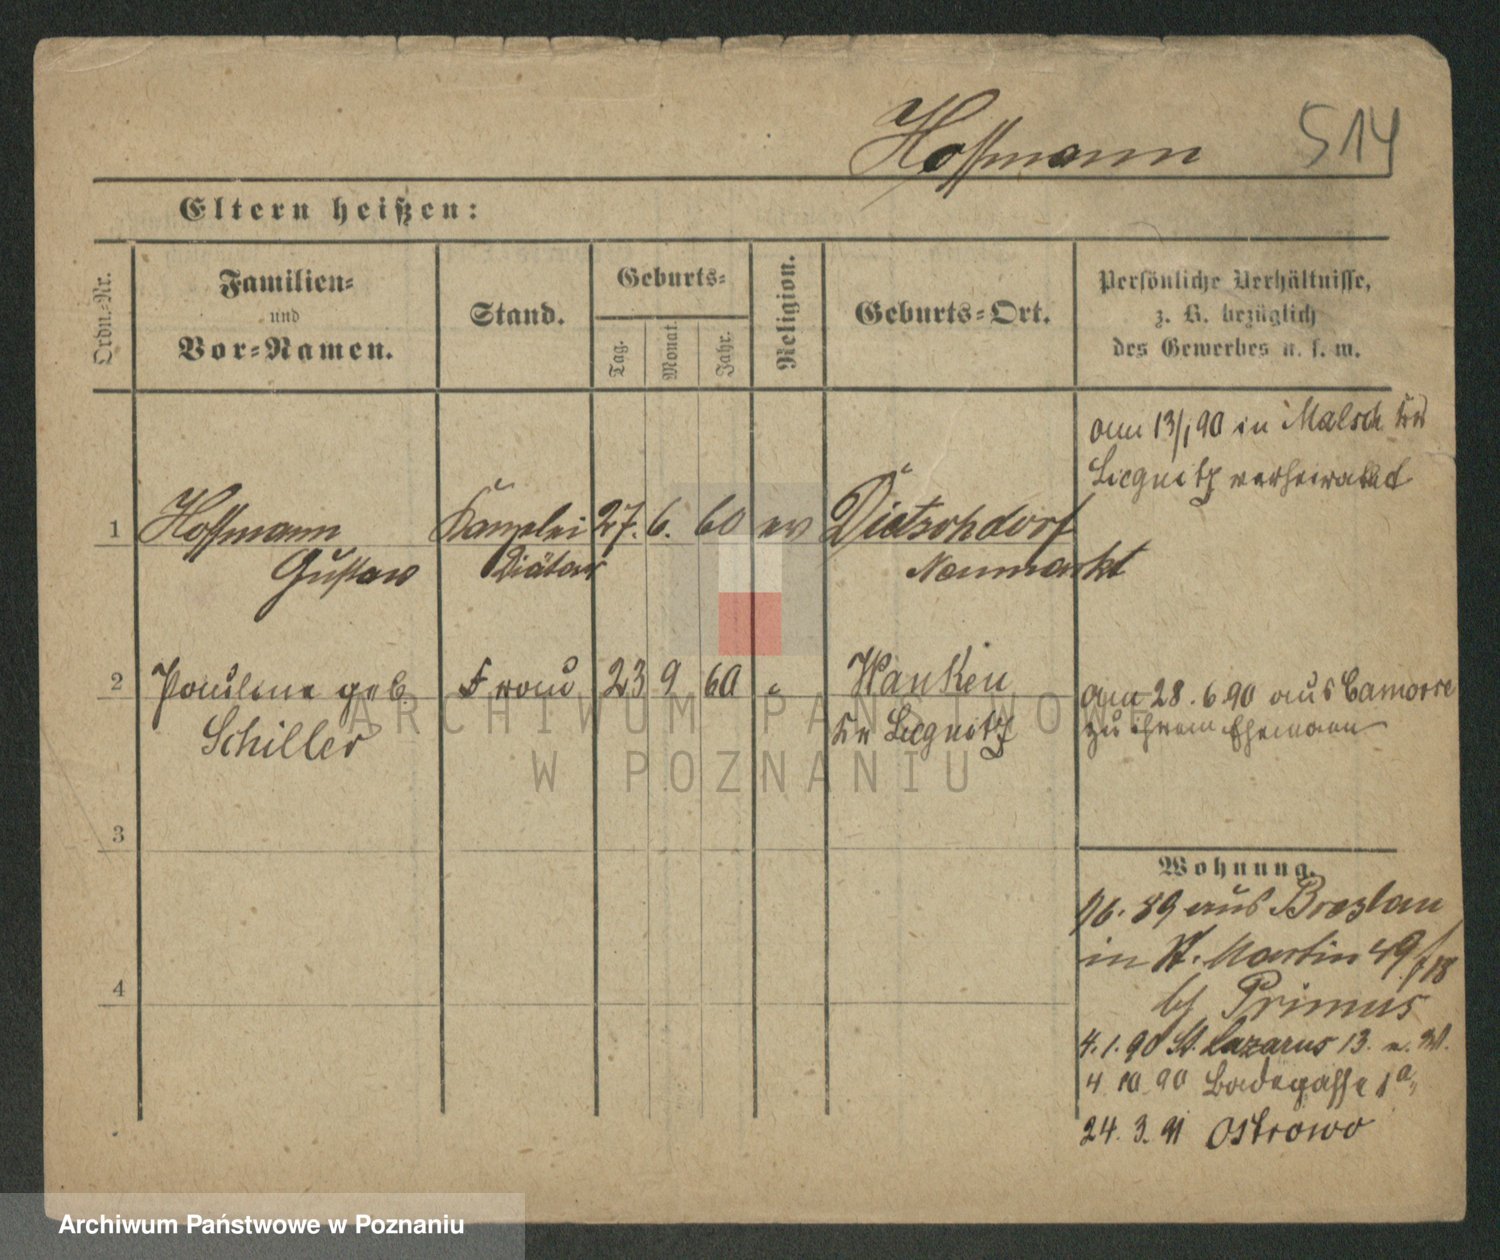 Hoffmann 514
Eltern heißen:
Ordn.-Nr.
Familien-
und
Vor-Namen.
Stand.
Geburts-
Tag.
Monat.
Jahr.
Religion.
Geburts-Ort.
Persönliche Verhältnisse,
z. B. bezüglich
des Gewerbes u. s. w.
am 13/1 90 in Malsch Kr
Liegnitz verheiratet
1 Hoffmann Kanzlei 27. 6. 60 ev Dietschdorf
Gustav Diätar Neumarkt
2 Pauline geb Frau 23 9 60 " Wanken am 28. 6. 90 aus
Schiller Kr Liegnitz zu ihrem Ehemann
3
4
Wohnung.
6. 89 aus Breslau
in St. Martin 49/
bj Primus
4. 1. 90 St. Lazarus 13.
4 10 90 Badegasse 1a
24. 3. 91 Ostrowo
ARCHIWUM PAŃSTWOWE
W POZNANIU
Archiwum Państwowe w Poznaniu